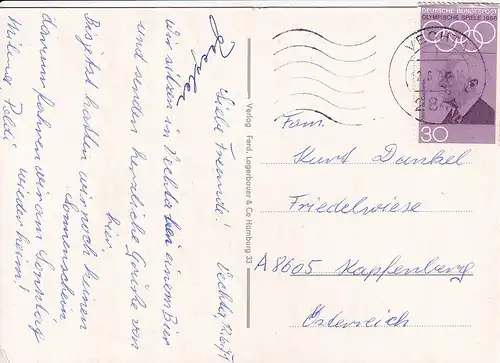 Vechta, 12.6.71
Liebe Freunde!
Wir sitzen in Vechta bei einem Bier
und senden herzliche Grüße von
hier.
Bis jetzt hatten wir noch keinen
Sonnenschein
darum fahren wir am Sonntag
wieder heim!
Milena, Poldi
Verlag Ferd. Lagerbauer & Co Hamburg 33
DEUTSCHE BUNDESPOST
OLYMPISCHE SPIELE 1968
30
VECHTA
Fam.
Kurt Dankel
Friedelwiese
A 8605 Kapfenberg
Österreich